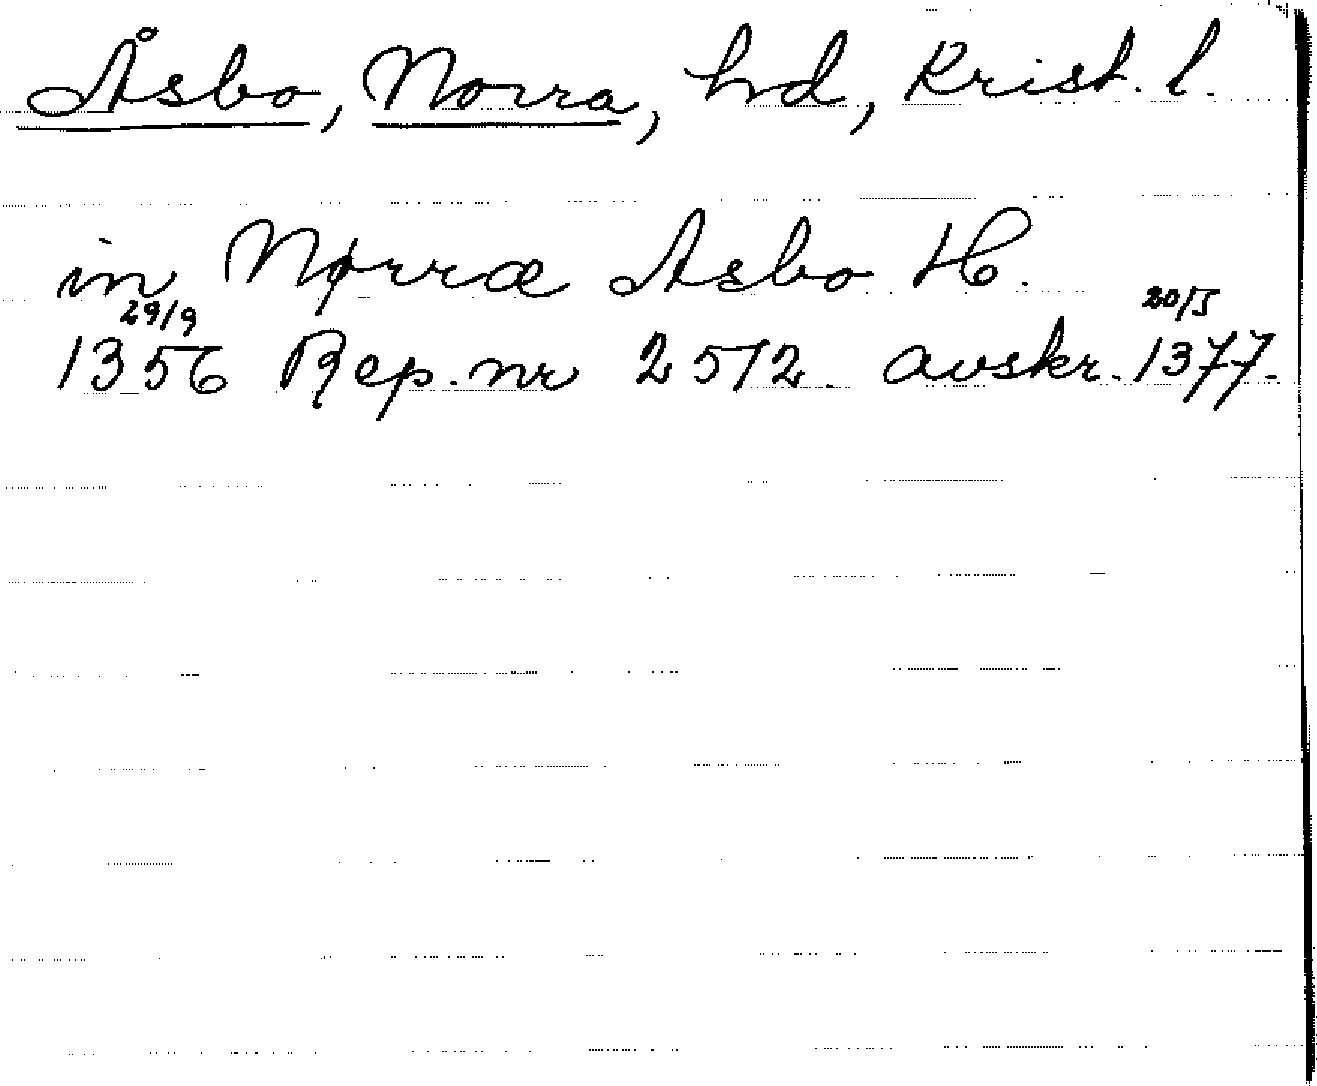 Åsbo, Norra, hd, Krist. l.
in Nørræ Asbo H.
29/9 20/5
1356 Rep. nr 2572. avskr. 1377.